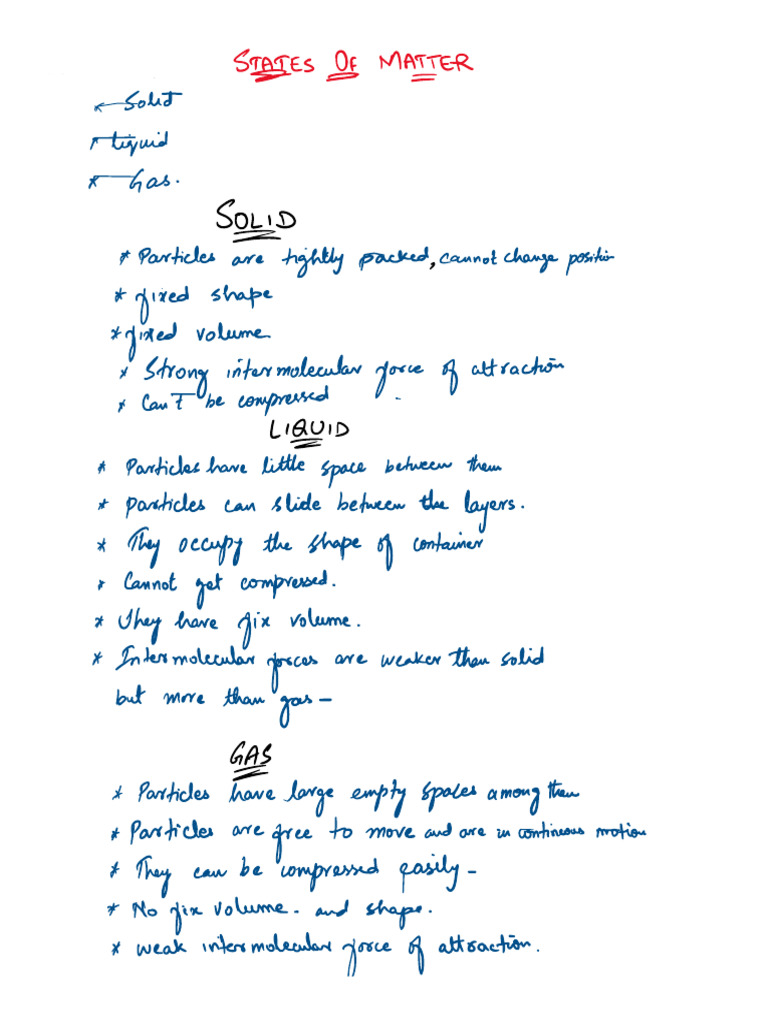 STATES OF MATTER
Solid
Liquid
* Gas.
SOLID
* Particles are tightly packed, cannot change position
* fixed shape
* fixed volume
* Strong intermolecular force of attraction
* Can't be compressed .
LIQUID
* Particles have little space between them
* particles can slide between the layers.
* They occupy the shape of container
* Cannot get compressed.
* They have fix volume.
* Intermolecular forces are weaker then solid
but more than gas -
GAS
* Particles have large empty spaces among them
* Particles are free to move and are in continous motion
* They can be compressed easily -
* No fix volume. and shape.
* weak intermolecular force of attraction.